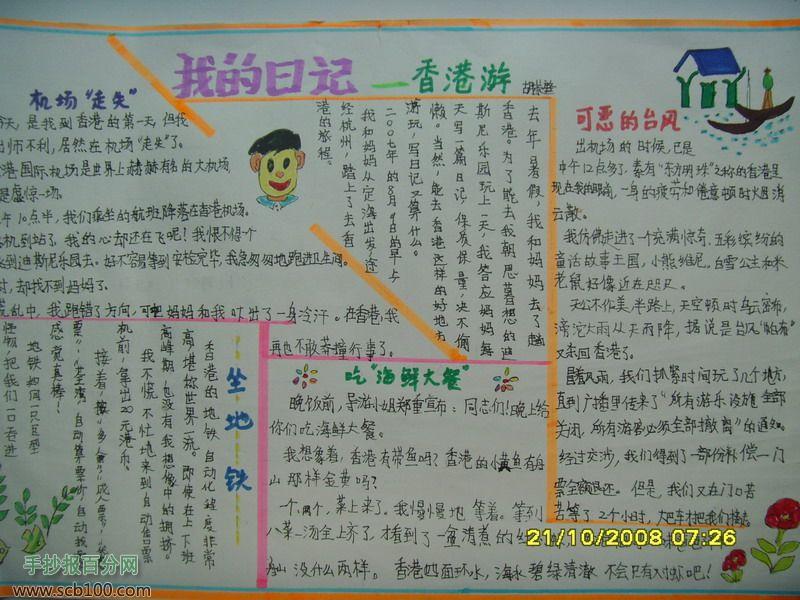 我的日记——香港游
机场“走失”
天，是我到香港的第一天，但我
出师不利，居然在机场“走失”了。
港国际机场是世界上赫赫有名的大机场，
是虚惊一场。
午10点半，我们乘坐的航班降落在香港机场。
机到站了，我的心却还在飞呢！我恨不得个
到迪斯尼乐园去。好不容易等到安检完毕，我急匆匆地跑进卫生间。
时，却找不到妈妈了。
乱中，我跑错了方向，可把妈妈和我吓出了一身冷汗。在香港，我
再也不敢莽撞行事了。
去年暑假，我和妈妈去了趟
香港。为了能去我朝思暮想的迪
斯尼乐园玩上一天，我答应妈妈每
天写一篇日记，保质保量，决不偷
懒。当然，能去香港这样的好地方
游玩，写日记又算什么。
二00七年的8月9日的早上，
我和妈妈从定海出发，途
经杭州，踏上了去香
港的旅程。
可恶的台风
出机场的时候，已是
中午12点多了，素有“东方明珠”之称的香港呈
现在我的眼前，一身的疲劳和倦意顿时火因消
云散。
我仿佛走进了一个充满惊奇、五彩缤纷的
童话故事王国，小熊维尼、白雪公主和米
老鼠好像近在咫尺。
天公不作美，半路上，天空顿时乌云密布，
滂沱大雨从天而降，据说是台风“帕布”
又杀回香港了。
冒着风雨，我们抓紧时间玩了几个地方，
直到广播里传来了“所有游乐设施全部
关闭，所有游客必须全部撤离”的通知。
经过交涉，我们得到一部份补偿一门
票全额退还。但是，我们又在门口苦
苦等了2个小时，大巴车才把我们接走
坐地铁
香港的地铁自动化程度非常
高，堪称世界一流。即使在上下班
高峰期，也没有我想像中的拥挤。
我不慌不忙地来到自动售票
机前，拿出20元港币。
感觉真棒！
地铁如同一只巨型
怪物，把我们一口吞进
吃“海鲜大餐”
晚饭前，导游小姐郑重宣布：同志们！晚上给
你们吃海鲜大餐。
我想象着，香港有带鱼吗？香港的小黄鱼有舟
山那样金黄吗？
一个，两个，菜上来了。我慢慢地等着。等到
八菜一汤全上齐了，才看到了一盘清煮的
舟山没什么两样。香港四面环水，海水碧绿清澈，不会只有小虾吧！
21/10/2008 07:26
手抄报百分网
www.scb100.com